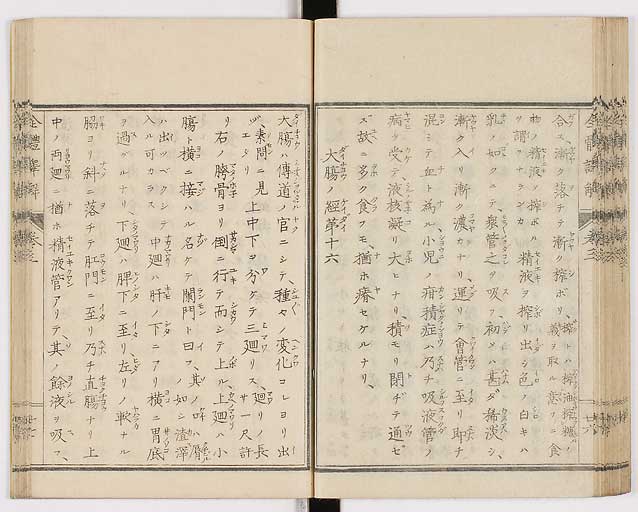 合ス、漸ク落チテ漸ク搾ボリ、搾トハ搾油搾糖ノ義ヲ取ル蓋フニ食
物ノ精液ヲ搾ボルノ謂ヲランカ 精液ヲ搾リ出シ色ノ白キハ
乳ノ如クニテ、衆管之ヲ吸フ、初メハ甚ダ稀淡シ、
漸ク入リ漸ク濃カナリ、運リテ會管ニ至リ即チ
混ミテ血ト為ル、小児ノ疳積症ハ乃チ吸液管ノ
病ヲ受テ、液核凝リ大ヒナリ、積モリ閉ヂテ通セ
ズ、故ニ多ク食フモ、猶ホ瘠セケルナリ、
大腸ノ經第十六
大腸ハ傳道ノ官ニシテ、種々ノ變化コレヨリ出
ヅ、素問ニ見エタリ 上中下ヲ分ケテ三廻リス、廻リノ長サ一尺許
リ右ノ胯骨ヨリ倒ニ行テ而シテ上ル、上廻ハ小
腸ト横ニ接ハル名ケテ闌門ト曰フ、其ノ口唇ノ如シ渣滓
ハ出ツベクシテ入ル可カラス 中廻ハ肝ノ下ニアリ横ニ胃底
ヲ過グルナリ、下廻ハ脾下ニ至リ左リノ軟ナル
脇ヨリ斜ニ落チテ肛門ニ至リ乃チ直腸ナリ上
中ノ両廻ニ猶ホ精液管アリテ、其ノ餘液ヲ吸フ、
全體譯解 卷三